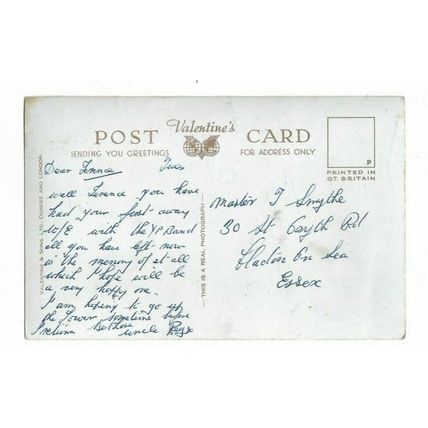 POST Valentine's CARD
SENDING YOU GREETINGS FOR ADDRESS ONLY
P
PRINTED IN
GT. BRITAIN
VALENTINE & SONS, LTD. DUNDEE AND LONDON
THIS IS A REAL PHOTOGRAPH
Dear Terence Tues
well Terence you have
had your first away
with the YP Band
all you have left now
is the memory of it all
which I hope will be
a very happy one.
I am hoping to go up
the Tower sometime before
I return
uncle
Master T Smythe
30 St Osyth Rd
Clacton on Sea
Essex